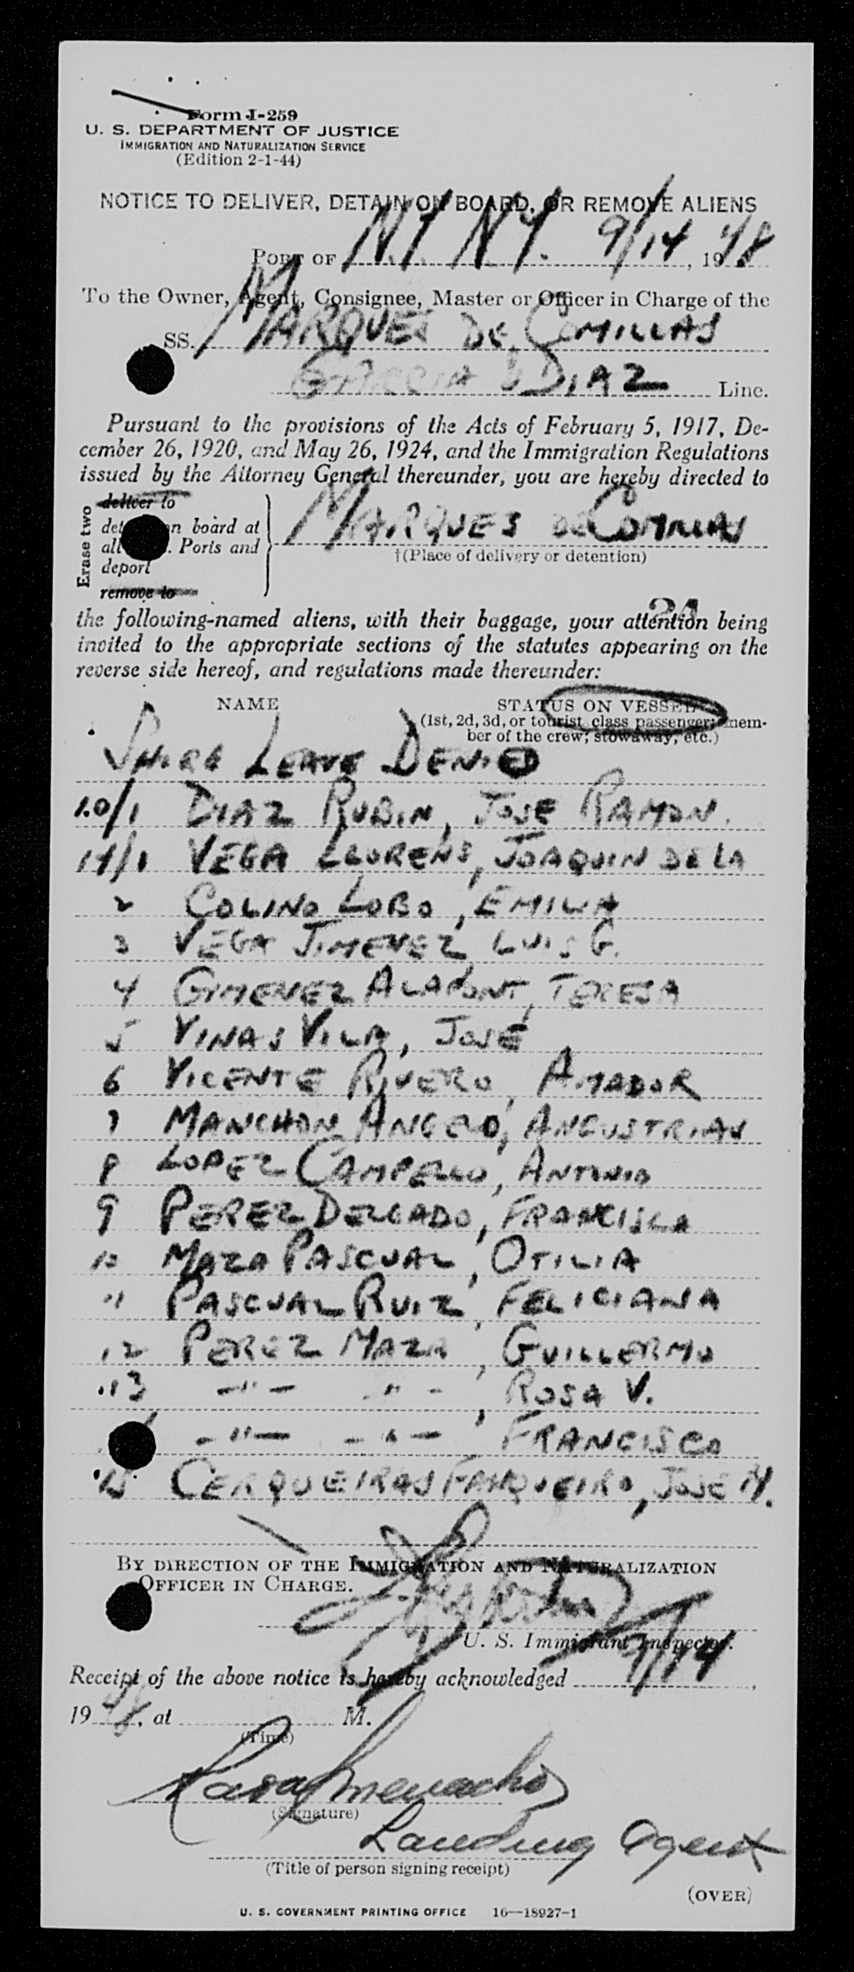 Form I-259
U. S. DEPARTMENT OF JUSTICE
IMMIGRATION AND NATURALIZATION SERVICE
(Edition 2-1-44)
NOTICE TO DELIVER, DETAIN ON BOARD, OR REMOVE ALIENS
PORT OF N.Y. N.Y. 9/14, 1948
To the Owner, Agent, Consignee, Master or Officer in Charge of the
SS. MARQUES DE COMILLAS
GARCIA & DIAZ Line.
Pursuant to the provisions of the Acts of February 5, 1917, De-
cember 26, 1920, and May 26, 1924, and the Immigration Regulations
issued by the Attorney General thereunder, you are hereby directed to
Erase two
deliver to
on board at
Ports and
deport
remove to
MARQUES DE COMILLAS
†(Place of delivery or detention)
24
the following-named aliens, with their baggage, your attention being
invited to the appropriate sections of the statutes appearing on the
reverse side hereof, and regulations made thereunder:
NAME STATUS ON VESSEL
(1st, 2d, 3d, or tourist class passenger; mem-
ber of the crew; stowaway, etc.)
SHORE LEAVE DENIED
10/1 DIAZ RUBIN, JOSE RAMON.
14/1 VEGA LLORENS, JOAQUIN DE LA
2 COLINO LOBO, EMILIA
3 VEGA JIMENEZ LUIS G.
4 GIMENEZ ALAPONT, TERESA
5 VINAS VILA, JOSE
6 VICENTE RIVERO, AMADOR
7 MANCHON ANGELO, ANGUSTRIAS
8 LOPEZ CAMPELLO, ANTONIO
9 PEREZ DELGADO, FRANCISCA
10 MAZA PASCUAL, OTILIA
11 PASCUAL RUIZ, FELICIANA
12 PEREZ MAZA, GUILLERMO
13 -"- -"-, ROSA V.
-"- -"-, FRANCISCO
15 CERQUEIRAS FANQUEIRO, JOSE M.
BY DIRECTION OF THE IMMIGRATION AND NATURALIZATION
OFFICER IN CHARGE.
U. S. Immigrant Inspector.
Receipt of the above notice is hereby acknowledged 9/14,
1948, at M.
(Time)
(Signature)
Landing Agent
(Title of person signing receipt)
(OVER)
U. S. GOVERNMENT PRINTING OFFICE 16—18927-1